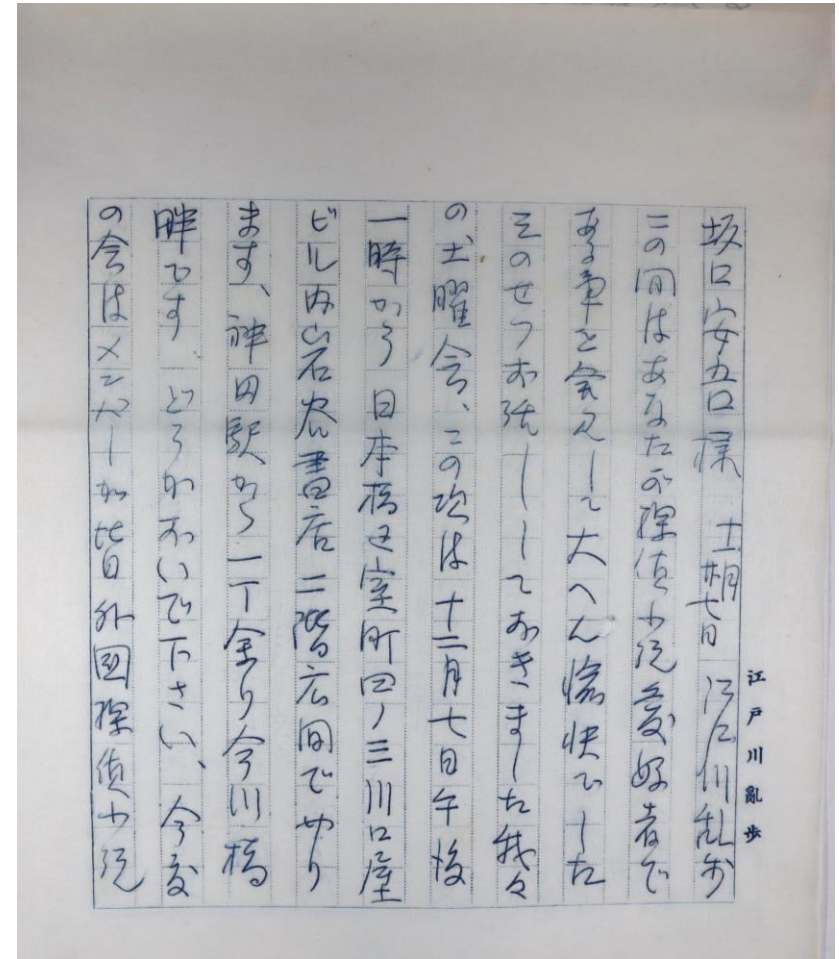 江戸川亂歩
坂口安吾様 十一月廿七日 江戸川乱歩
この間はあなたが探偵小説愛好者で
ある事を知って大へん愉快でした
そのせつお話ししておきました我々
の土曜会、この次は十二月七日午後
一時から日本橋区室町四ノ三川口屋
ビル内岩谷書店二階広間でやり
ます、神田駅から一丁余り今川橋
畔です、どうかおいで下さい、今度
の会はメンバーが皆外國探偵小説